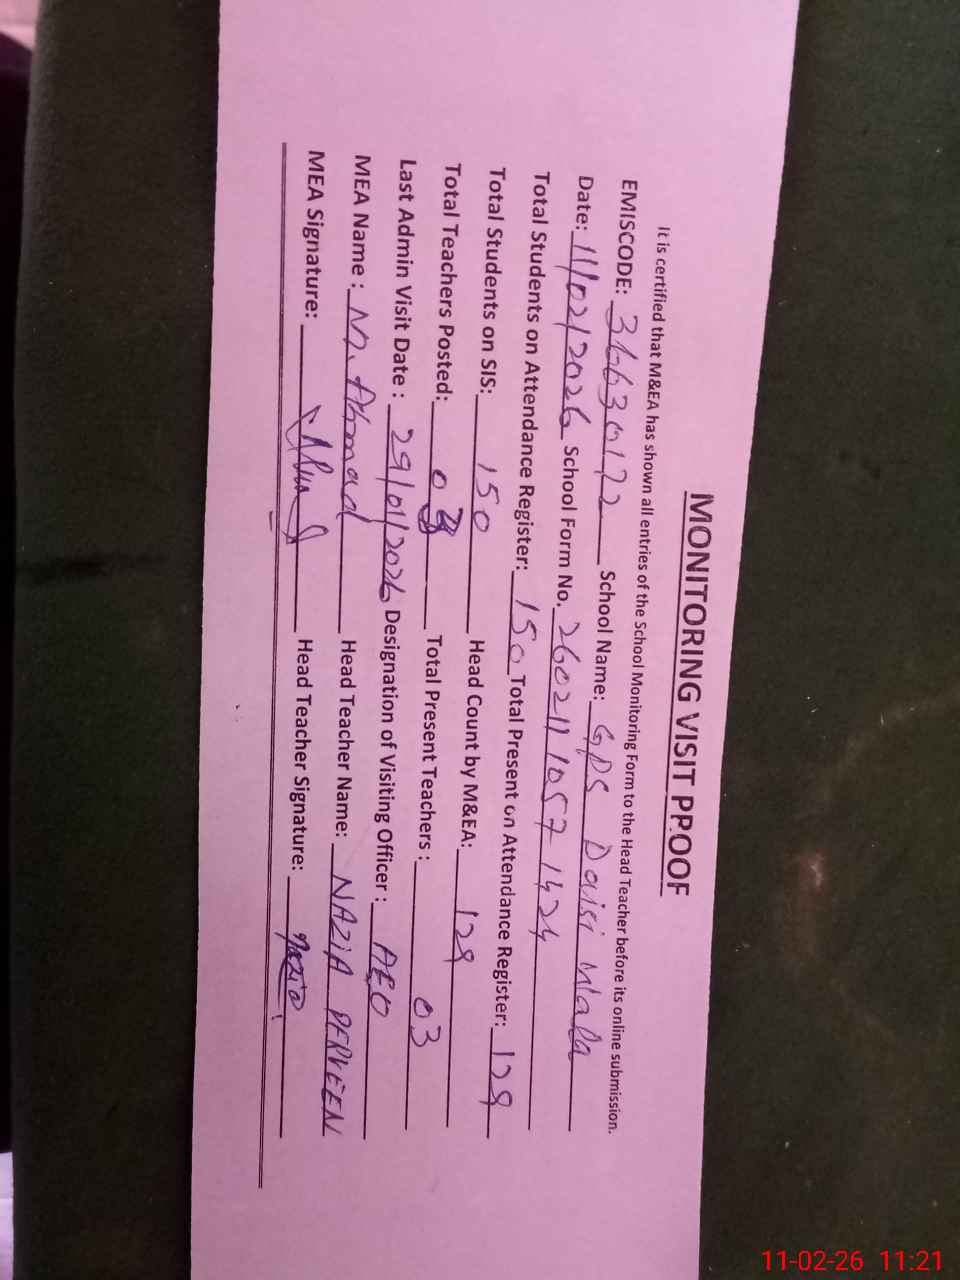 MONITORING VISIT PPOOF
It is certified that M&EA has shown all entries of the School Monitoring Form to the Head Teacher before its online submission.
EMISCODE: 36630122 School Name: GPS Daisi Wala
Date: 11/02/2026 School Form No. 2602111057 1424
Total Students on Attendance Register: 150 Total Present on Attendance Register: 129
Total Students on SIS: 150 Head Count by M&EA: 129
Total Teachers Posted: 03 Total Present Teachers: 03
Last Admin Visit Date : 29/01/2026 Designation of Visiting Officer : AEO
MEA Name : M. Ahmad Head Teacher Name: NAZIA PERVEEN
MEA Signature: Head Teacher Signature: Nazia
11-02-26 11:21